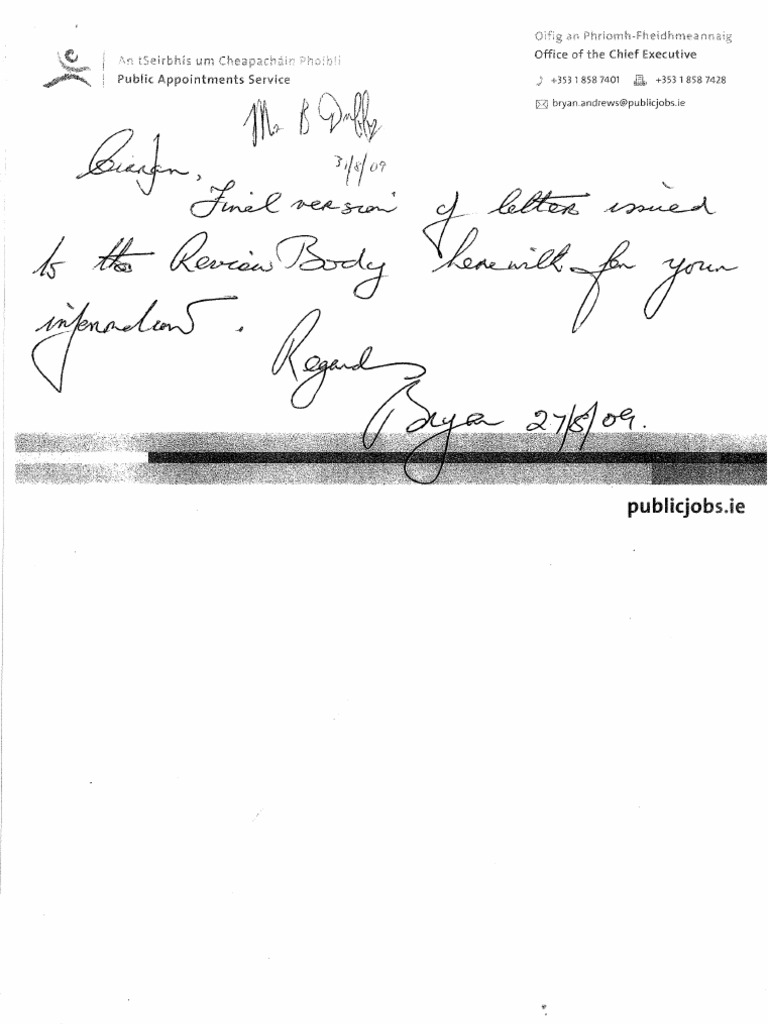 Oifig an Phríomh-Fheidhmeannaig
Office of the Chief Executive
An tSeirbhís um Cheapacháin Phoiblí
Public Appointments Service
+353 1 858 7401 +353 1 858 7428
bryan.andrews@publicjobs.ie
Mr B Duffy
31/8/09
Ciarán,
Final version of letter issued
to the Review Body herewith for your
information.
Regards
Bryan 27/8/09.
publicjobs.ie